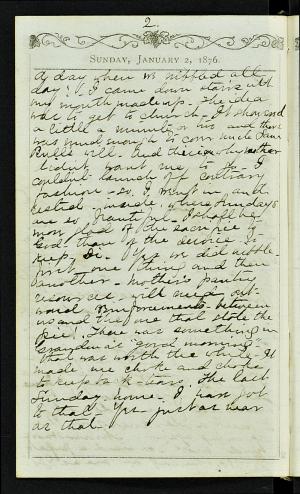 2.
SUNDAY, JANUARY 2, 1876.
A day when we nibbled all
day! I came down stairs with
my mouth made up. The idea
was to get to church. It showered
a little a minute or two and there
was mud enough to
And there when mother
didn't want me to go. I
couldn't launch off contrary
fashion - so. I went in, and
rested - inside, where Sundays
are so beautiful. I shall be
more glad of the sacrifice to
God, than of the service, to
keep, Di. Yes, we did nibble.
first one thing and then
another. Mother's pantry
resources will need
between
us and the one that stole the
Die! There was something in
Grandma's "good morning"
that was worth the while. It
made me choke and choke
to keep back tears. The last
Sunday home. I have got
to that. Yes just as near
as that.